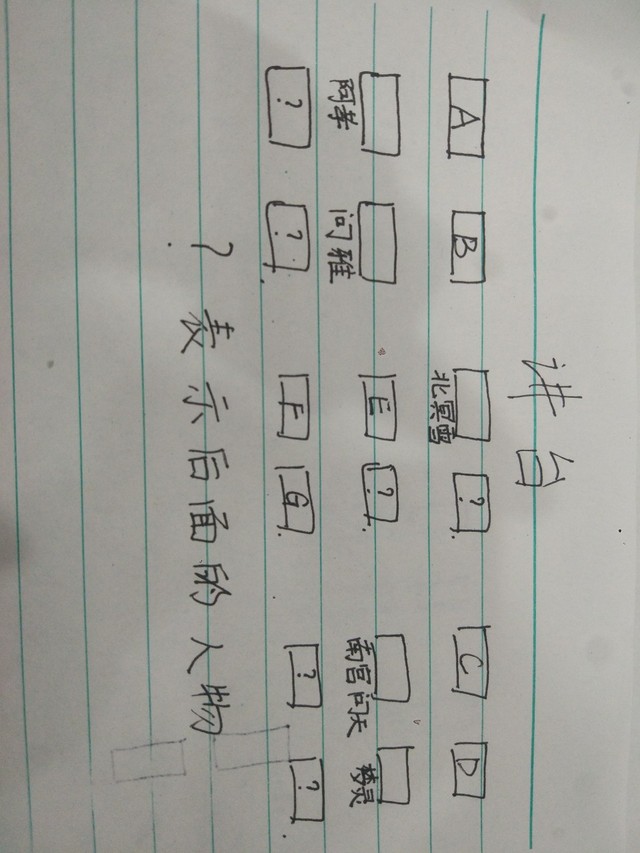 讲台
A B ? C D
北冥雪
E ?
问雅 南宫问天 梦灵
? ? F G ? ?
? 表示后面的人物